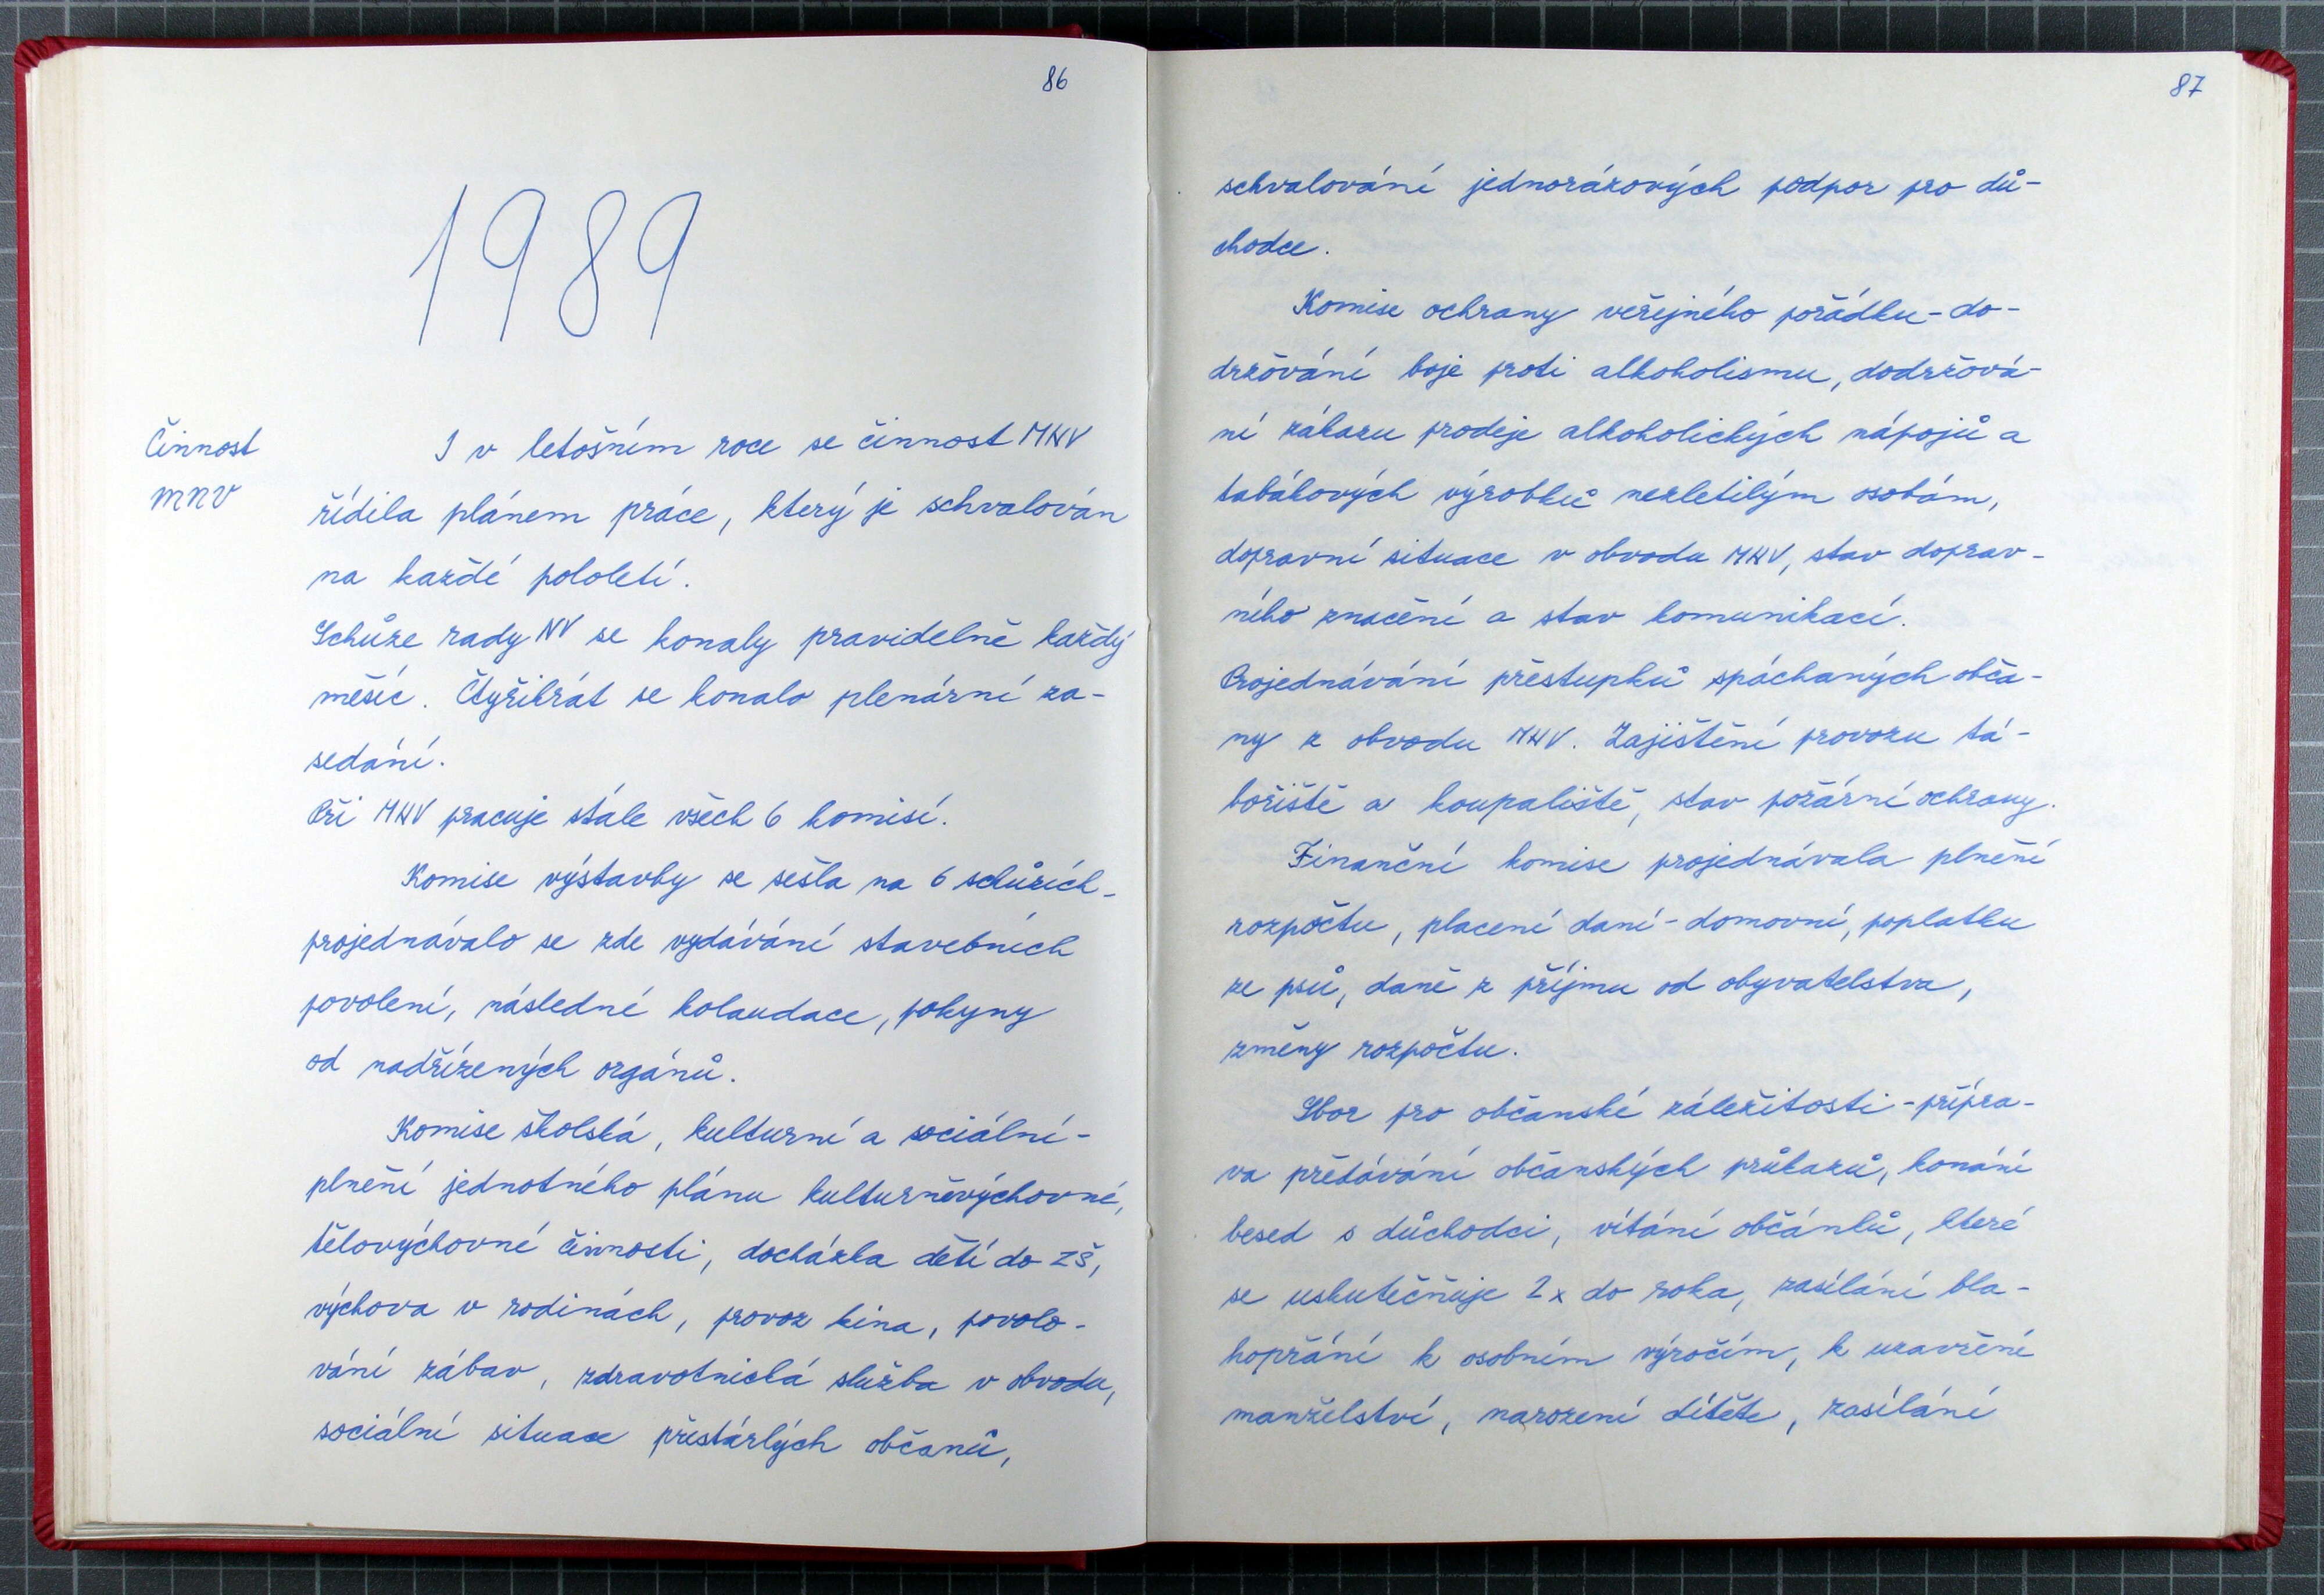 86
1989
Činnost
MNV
I v letošním roce se činnost MNV
řídila plánem práce, který je schvalován
na každé pololetí.
Schůze rady NV se konaly pravidelně každý
měsíc. Čtyřikrát se konalo plenární za-
sedání.
Při MNV pracuje stále všech 6 komisí.
Komise výstavby se sešla na 6 schůzích -
projednávalo se zde vydávání stavebních
povolení, následné kolaudace, pokyny
od nadřízených orgánů.
Komise školská, kulturní a sociální -
plnění jednotného plánu kulturněvýchovné,
tělovýchovné činnosti, docházka dětí do ZŠ,
výchova v rodinách, provoz kina, povolo-
vání zábav, zdravotnická služba v obvodu,
sociální situace přestárlých občanů,
87
schvalování jednorázových podpor pro dů-
chodce.
Komise ochrany veřejného pořádku - do-
držování boje proti alkoholismu, dodržová-
ní zákazu prodeje alkoholických nápojů a
tabákových výrobků nezletilým osobám,
dopravní situace v obvodu MNV, stav doprav-
ního značení a stav komunikací.
Projednávání přestupků spáchaných obča-
ny z obvodu MNV. Zajištění provozu tá-
bořiště a koupaliště, stav požární ochrany.
Finanční komise projednávala plnění
rozpočtu, placení daní - domovní, poplatku
ze psů, daně z příjmu od obyvatelstva,
změny rozpočtu.
Sbor pro občanské záležitosti - přípra-
va předávání občanských průkazů, konání
besed s důchodci, vítání občánků, které
se uskutečňuje 2x do roka, zasílání bla-
hopřání k osobním výročím, k uzavření
manželství, narození dítěte, zasílání